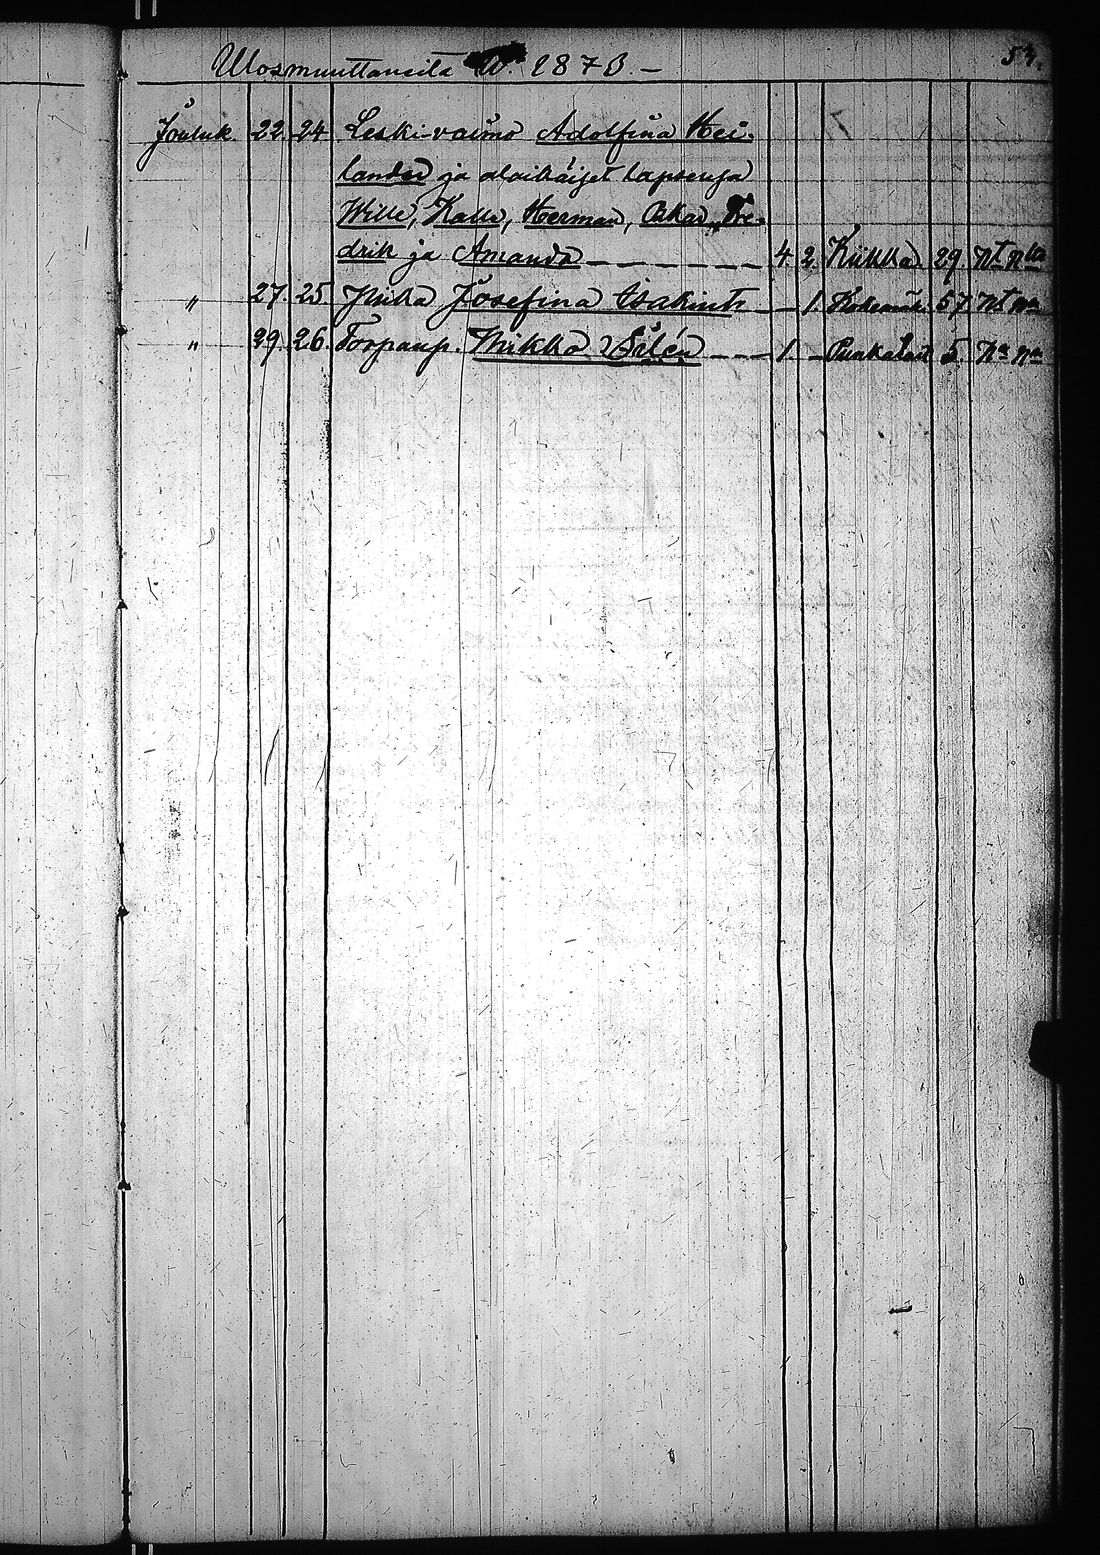 Ulosmuuttaneita W. 1873. 53.
Jouluk. 22. 24 Leski-vaimo Adolfina Hei-
lander ja alaikäiset lapsensa
Wille, Kalle, Herman, Oskar, Fre-
drik ja Amanda 4 2 Kiikka 29
" 27. 25 Piika Josefina Isakint. 1. 57
" 29. 26. Torpanp. Mikko Silén 1. – 5